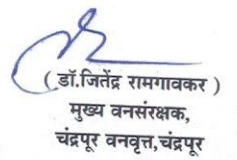 ( डॉ.जितेंद्र रामगावकर )
मुख्य वनसंरक्षक,
चंद्रपूर वनवृत्त,चंद्रपूर